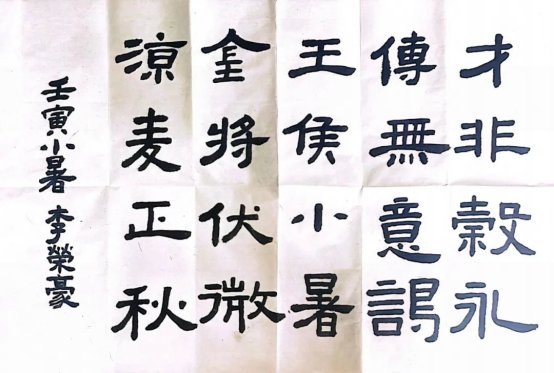 才非穀永
傳無意謁
王侯小暑
金將伏微
涼麦正秋
壬寅小暑 李榮豪